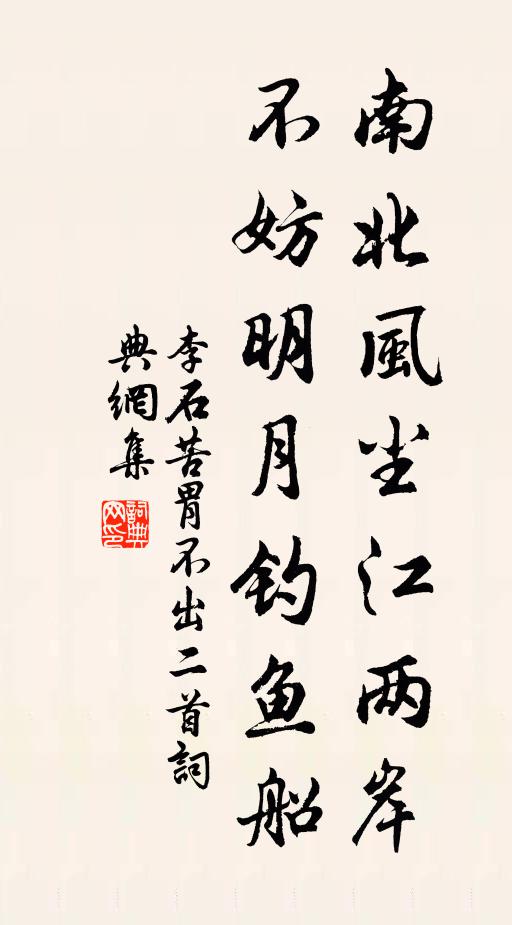 南北風尘江两岸
不妨明月钓鱼船
李石苦胃不出二首詞
典網集
詞典网印